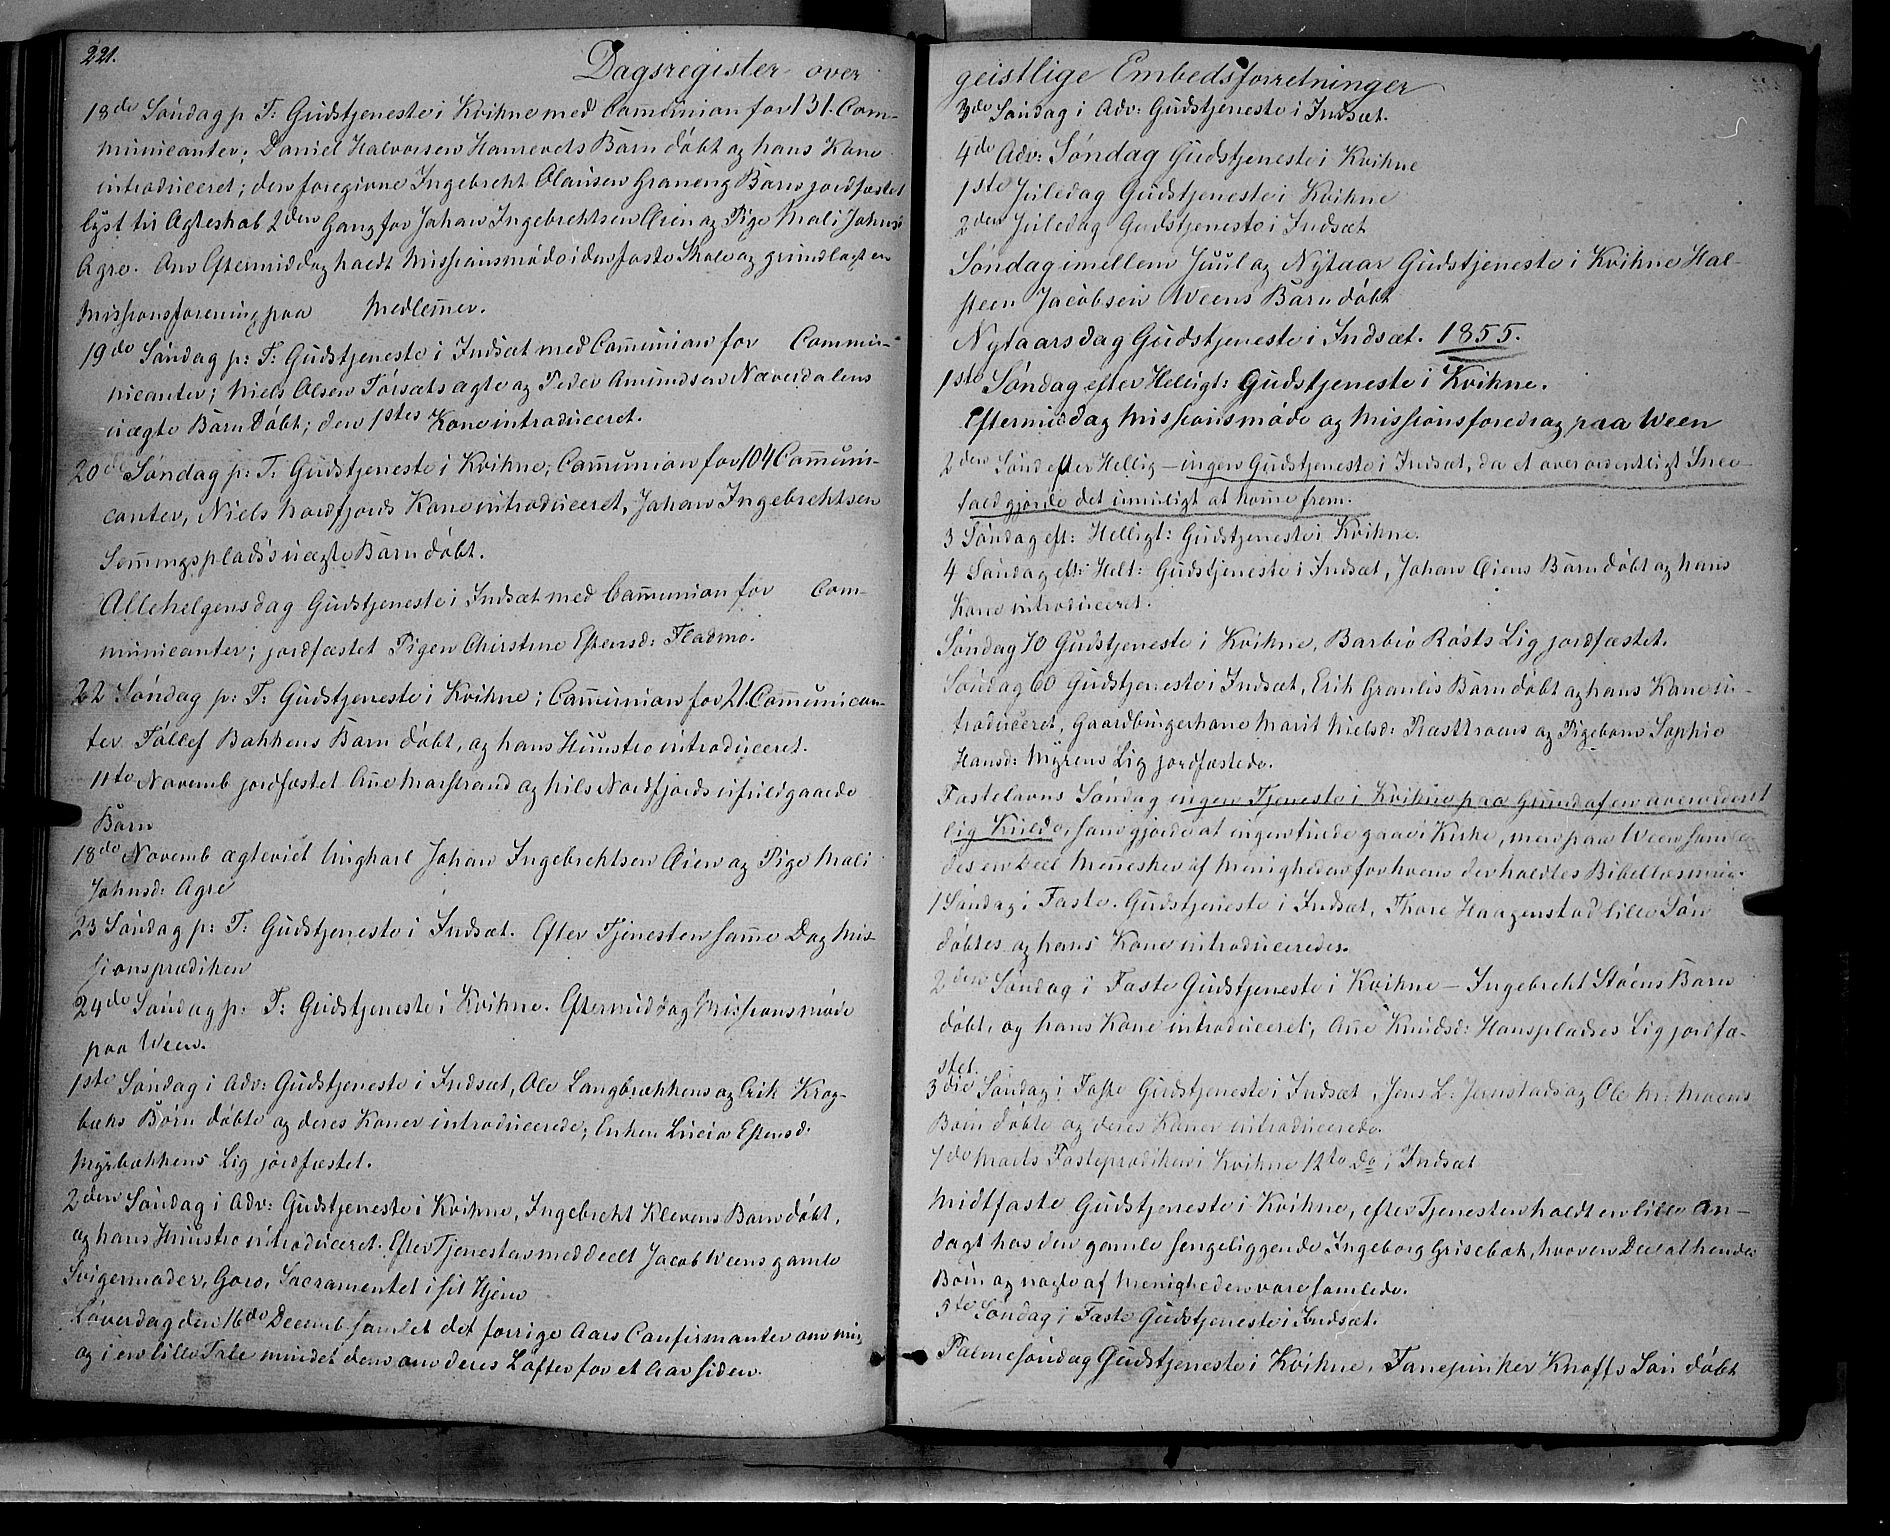 221.
Dagsregister over
18de Søndag p T: Gudstjeneste i Kvikne med Comūnion for 131. Com-
municanter; Daniel Halvorsen Barn døbt og hans Kone
introduceret; den foregivne Ingebrekt Olausen Graneng Barn jordfæstet
lyst til Ægteskab 2den Gang for Johan Ingebrechtsen Øien og Pige Mali Johnsd
Agre. Om Eftermiddag holdt Missionsmøde i den faste Skole og grundlagt en
Missionsforening paa Medlem̄er.
19de Søndag p: T: Gudstjeneste i Indsæt med Com̄union for Commu-
nicanter; Niels Olsen Torsæts ægte og Peder Amundsen Næverdalens
uægte Barn Døbt; den 1stes Kone introduceret.
20de Søndag p: T: Gudstjeneste i Kvikne; Com̄union for 104 Com̄uni-
canter, Niels Nordfjords Kone introduceret, Johan Ingebrektsen
Sem̄ingsplads's uægte Barn døbt.
Allehelgensdag Gudstjeneste i Indsæt med Com̄union for Com-
municanter; jordfæstet Pigen Chirstine Estensd: Fladmo.
22 Søndag p: T: Gudstjeneste i Kvikne; Com̄union for 21. Com̄unican-
ter Tollef Bakkens Barn døbt, og hans Huustro introduceret.
11te Novemb jordfæstet An̄e Marstrand og Nils Nordfjords
Barn
18de Novemb ægteviet Ungkarl Johan Ingebrektsen Øien og Pige Mali
Johnsd: Agre
23 Søndag p: T: Gudstjeneste i Indsæt. Efter Tjenesten sam̄e Dag Mis-
sionsprædiken
24de Søndag p: T: Gudstjeneste i Kvikne. Eftermiddag Missionsmøde
paa Ween.
1ste Søndag i Adv: Gudstjeneste i Indsæt, Ole Langbrækkens og Erik Krog-
bæks Børn døbte og deres Koner introducerede; Enken Lucia Estensd:
Myrbækkens Lig jordfæstet.
2den Søndag i Adv: Gudstjeneste i Kvikne, Ingebrekt Klevens Barn døbt,
og hans Huustro introduceret. Efter Tjenesten meddeelt Jacob Weens gamle
Svigermoder, Goro, Sacramentet i sit Hjem
Løverdag den 16de Decemb samlet det forrige Aars Confirmanter om mig
og i en lille Tale mindet dem om deres Løfter for et Aar siden.
geistlige Embedsforretninger
3de Søndag i Adv: Gudstjeneste i Indsæt.
4de Adv: Søndag Gudstjeneste i Kvikne
1ste Juledag Gudstjeneste i Kvikne
2den Juledag Gudstjeneste i Indsæt
Søndag imellem Juul og Nytaar Gudstjeneste i Kvikne Hal-
steen Jacobsen Weens Barn døbt
Nytaarsdag Gudstjeneste i Indsæt. 1855.
1ste Søndag efter Helligt: Gudstjeneste i Kvikne.
Eftermiddag Missionsmøde og Missionsforedrag paa Ween
2den Sønd efter Hellig – ingen Gudstjeneste i Indsæt, da et overordentligt Snee-
fald gjorde det umuligt at kom̄e frem.
3 Søndag eft: Helligt: Gudstjeneste i Kvikne.
4 Søndag eft: Helt: Gudstjeneste i Indsæt, Johan Øiens Barn døbt og hans
Kone introduceret.
Søndag 70 Gudstjeneste i Kvikne, Barbro Røsts Lig jordfæstet.
Søndag 60 Gudstjeneste i Indsæt, Erik Granlis Barn døbt og hans Kone in-
troduceret, Gaardbrugerkone Marit Nielsd: Præsttroens og Pigebarn Sophie
Hansd: Myrens Lig jordfæstede.
Fastelavns Søndag ingen Tjeneste i Kvikne paa Grund af en overordent
lig Kulde, som gjorde at ingen turde gaae i Kirke, men paa Ween samle-
des en Deel Men̄esker af Menigheden for hvem der holdtes Bibellæsning.
1 Søndag i Faste. Gudstjeneste i Indsæt, Thore Haagenstad lille Søn
døbtes og hans Kone introduceredes.
2den Søndag i Faste Gudstjeneste i Kvikne – Ingebrekt Støens Barn
døbt, og hans Kone introduceret; An̄e Knudsd: Hanspladses Lig jordfæ-
stet.
3die Søndag i Faste Gudstjeneste i Indsæt, Jens L: Jernstads og Ole M: Moens
Børn døbte og deres Koner introducerede.
7de Marts Fasteprædiken i Kvikne 12te Do i Indsæt
Midtfaste Gudstjeneste i Kvikne, efter Tjenesten holdt en lille An-
dagt hos den gamle sengeliggende Ingeborg Grisebæk, hvor en Deel af hendes
Børn og nogle af Menigheden vare samlede.
5te Søndag i Faste Gudstjeneste i Indsæt.
Palmesøndag Gudstjeneste i Kvikne, Fanejunker Knoffs Søn døbt